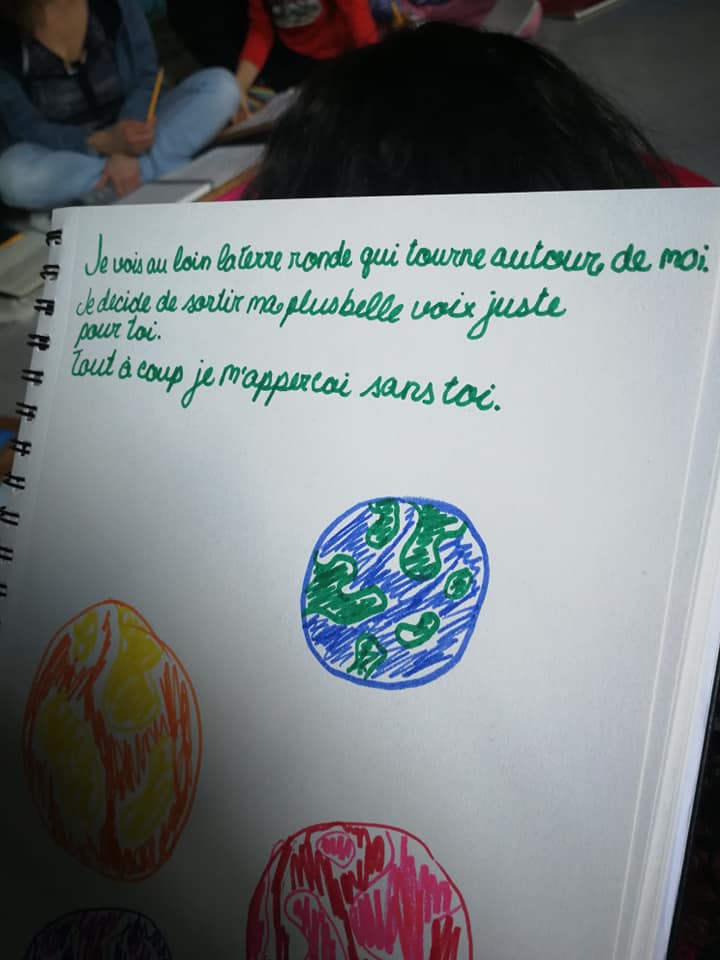 Je vois au loin la terre ronde qui tourne autour de moi.
Je decide de sortir ma plus belle voix juste
pour toi.
Tout à coup je m'appercoi sans toi.